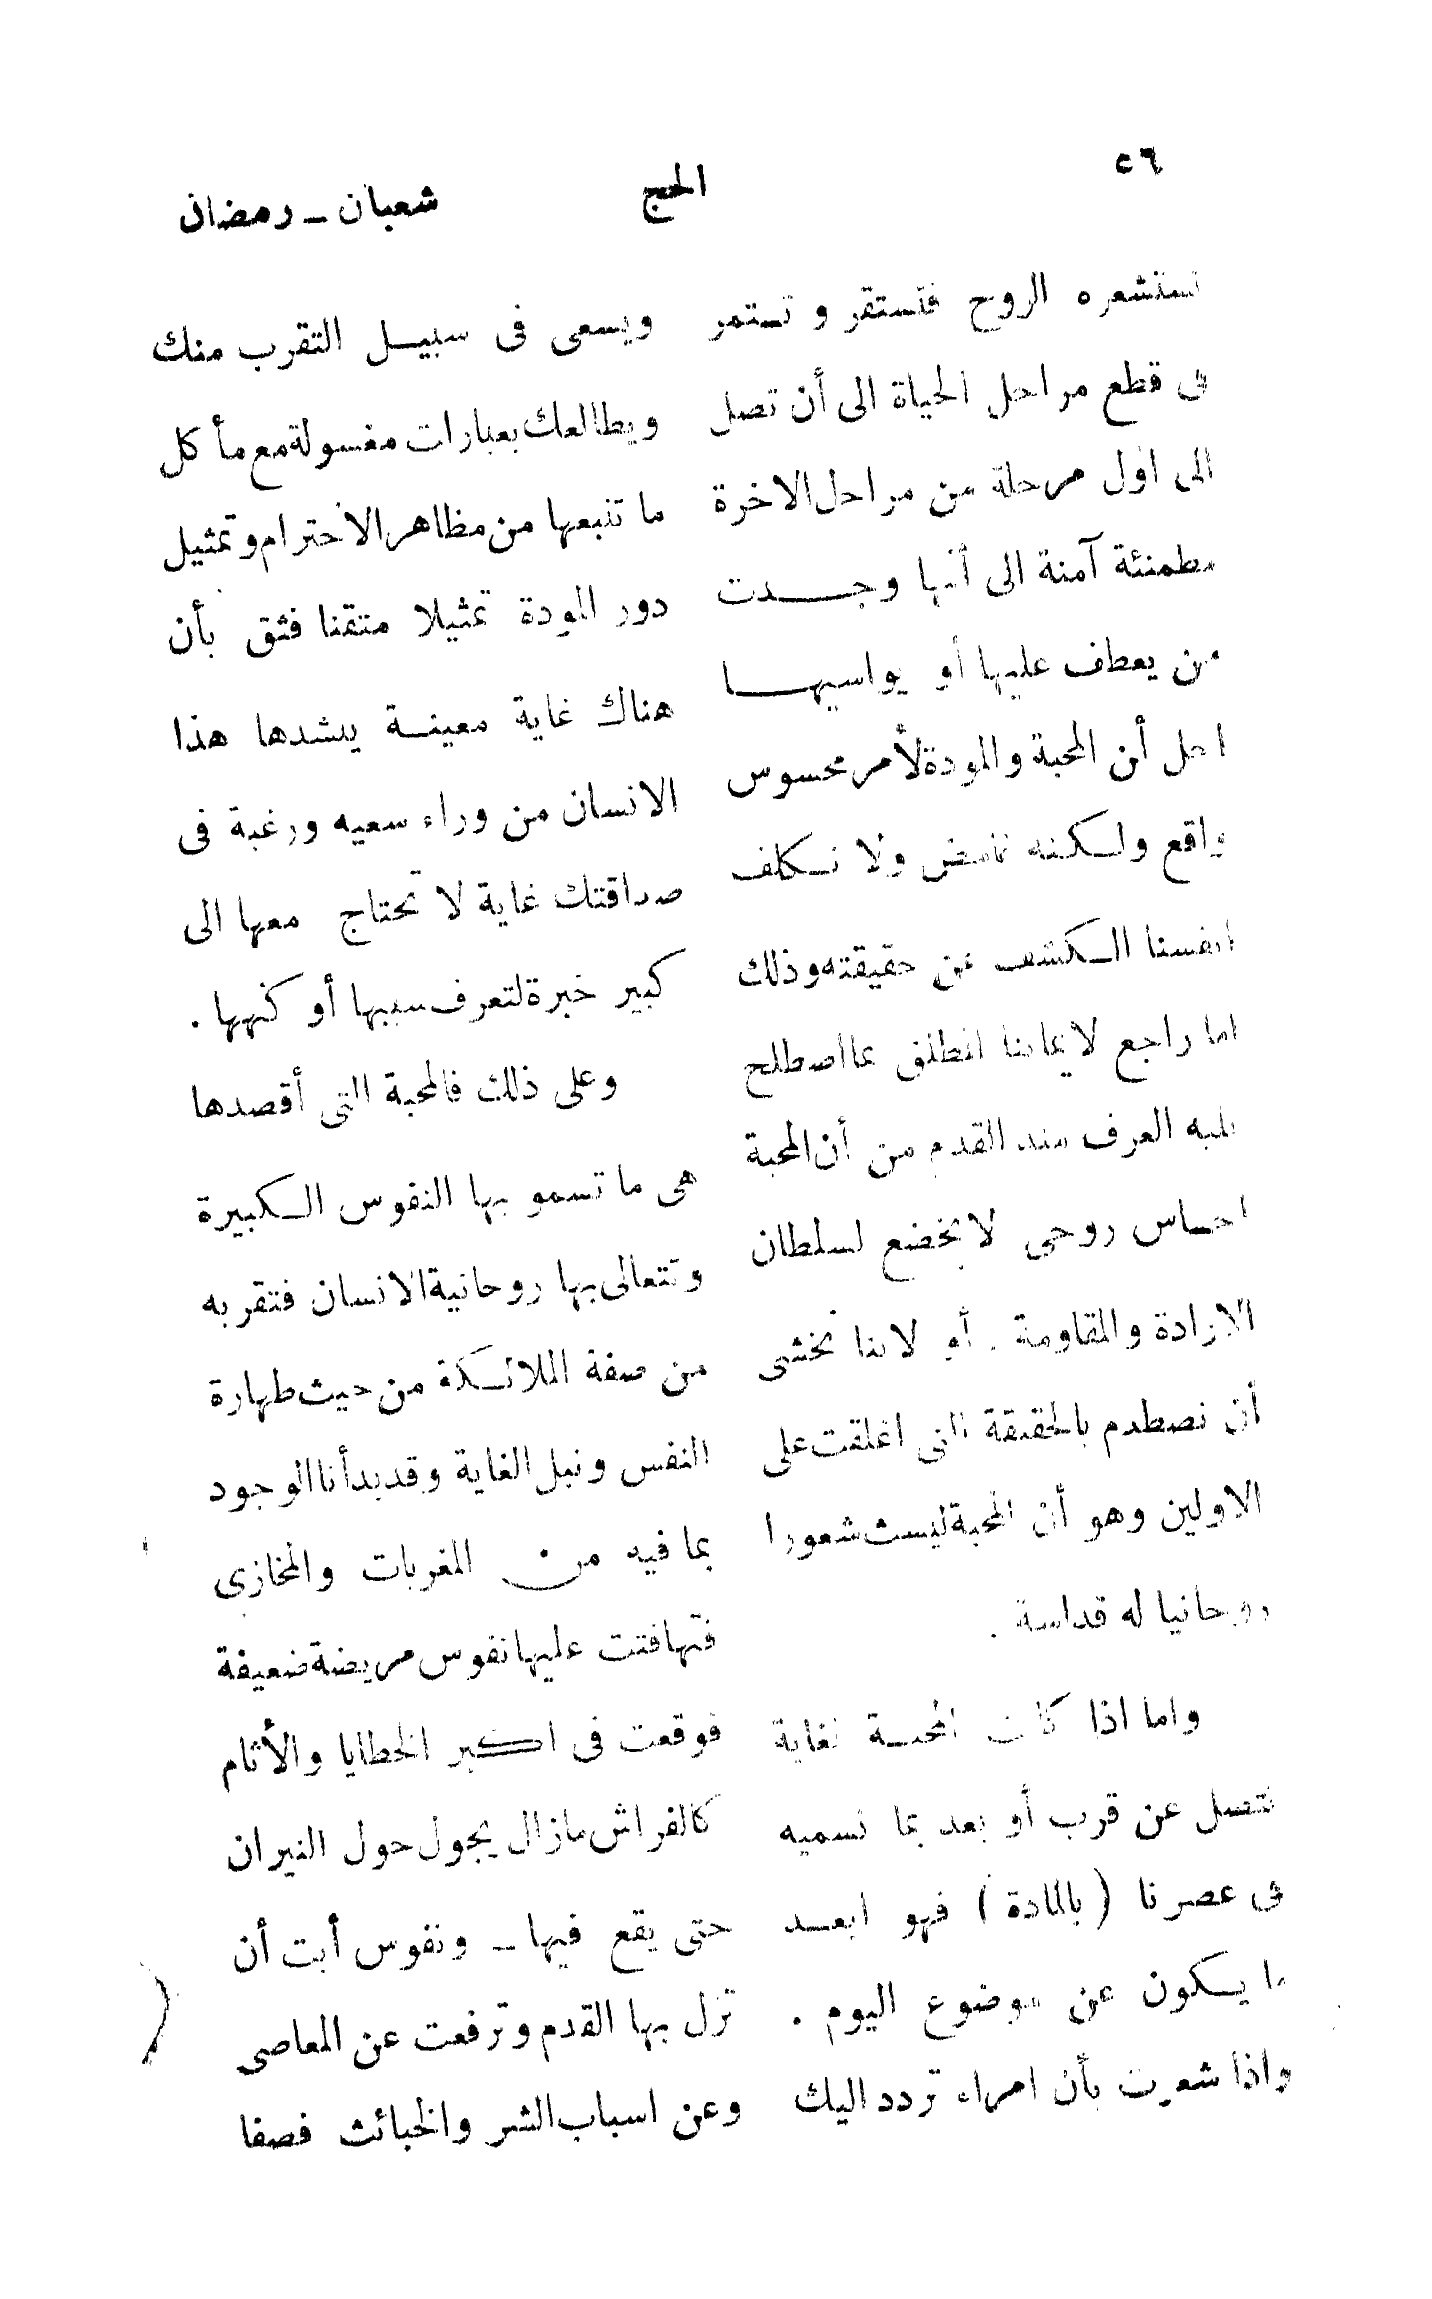 ٥٦
الحج
شعبان ـ رمضان
تستشعره الروح فتستقر و تستمر
فى قطع مراحل الحياة الى أن تصل
الى اول مرحلة من مراحل الاخرة
مطمئنة آمنة الى أنها وجدت
من يعطف عليها أو يواسيها
اجل أن المحبة والمودة لأمر محسوس
واقع ولكنه غامض ولا نكلف
انفسنا الكشف عن حقيقته وذلك
اما راجع لايماننا المطلق بما اصطلح
عليه العرف منذ القدم من أن المحبة
احساس روحى لا يخضع لسلطان
الارادة والمقاومة . أو لاننا نخشى
أن نصطدم بالحقيقة التى اغلقت على
الاولين وهو أن المحبة ليست شعورا
روحانيا له قداسة .
واما اذا كانت المحبة لغاية
تتصل عن قرب أو بعد بما نسميه
فى عصرنا ( بالمادة ) فهو ابعد
ما يكون عن موضوع اليوم .
واذا شعرت بأن امراء تردد اليك
ويسعى فى سبيل التقرب منك
ويطالعك بعبارات مغسولة مع مأ كل
ما تتبعها من مظاهر الاحترام وتمثيل
دور المودة تمثيلا متقنا فثق بأن
هناك غاية معينة ينشدها هذا
الانسان من وراء سعيه ورغبة فى
صداقتك غاية لا تحتاج معها الى
كبير خبرة لتعرف سببها أو كنهها .
وعلى ذلك فالمحبة التى أقصدها
هى ما تسمو بها النفوس الكبيرة
وتتعالى بها روحانية الانسان فتقر به
من صفة الملائكة من حيث طهارة
النفس ونبل الغاية وقد بدأنا الوجود
بما فيه من المغريات والمخازى
فتهافتت عليها نفوس مريضة ضعيفة
فوقعت فى اكبر الخطايا والأثام
كالفراش مازال يجول حول النيران
حتى يقع فيها ـ ونفوس أبت أن
تزل بها القدم وترفعت عن المعاصى
وعن اسباب الشر والخبائث فصفا